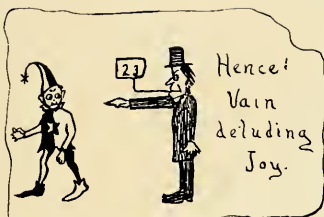 23
Hence!
Vain
deluding
Joy.